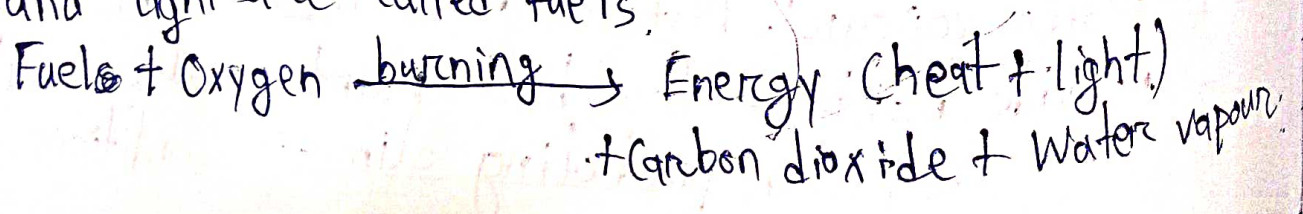 and light are called fuels.
Fuels + Oxygen burning → Energy (heat + light)
+ Carbon dioxide + Water vapour.